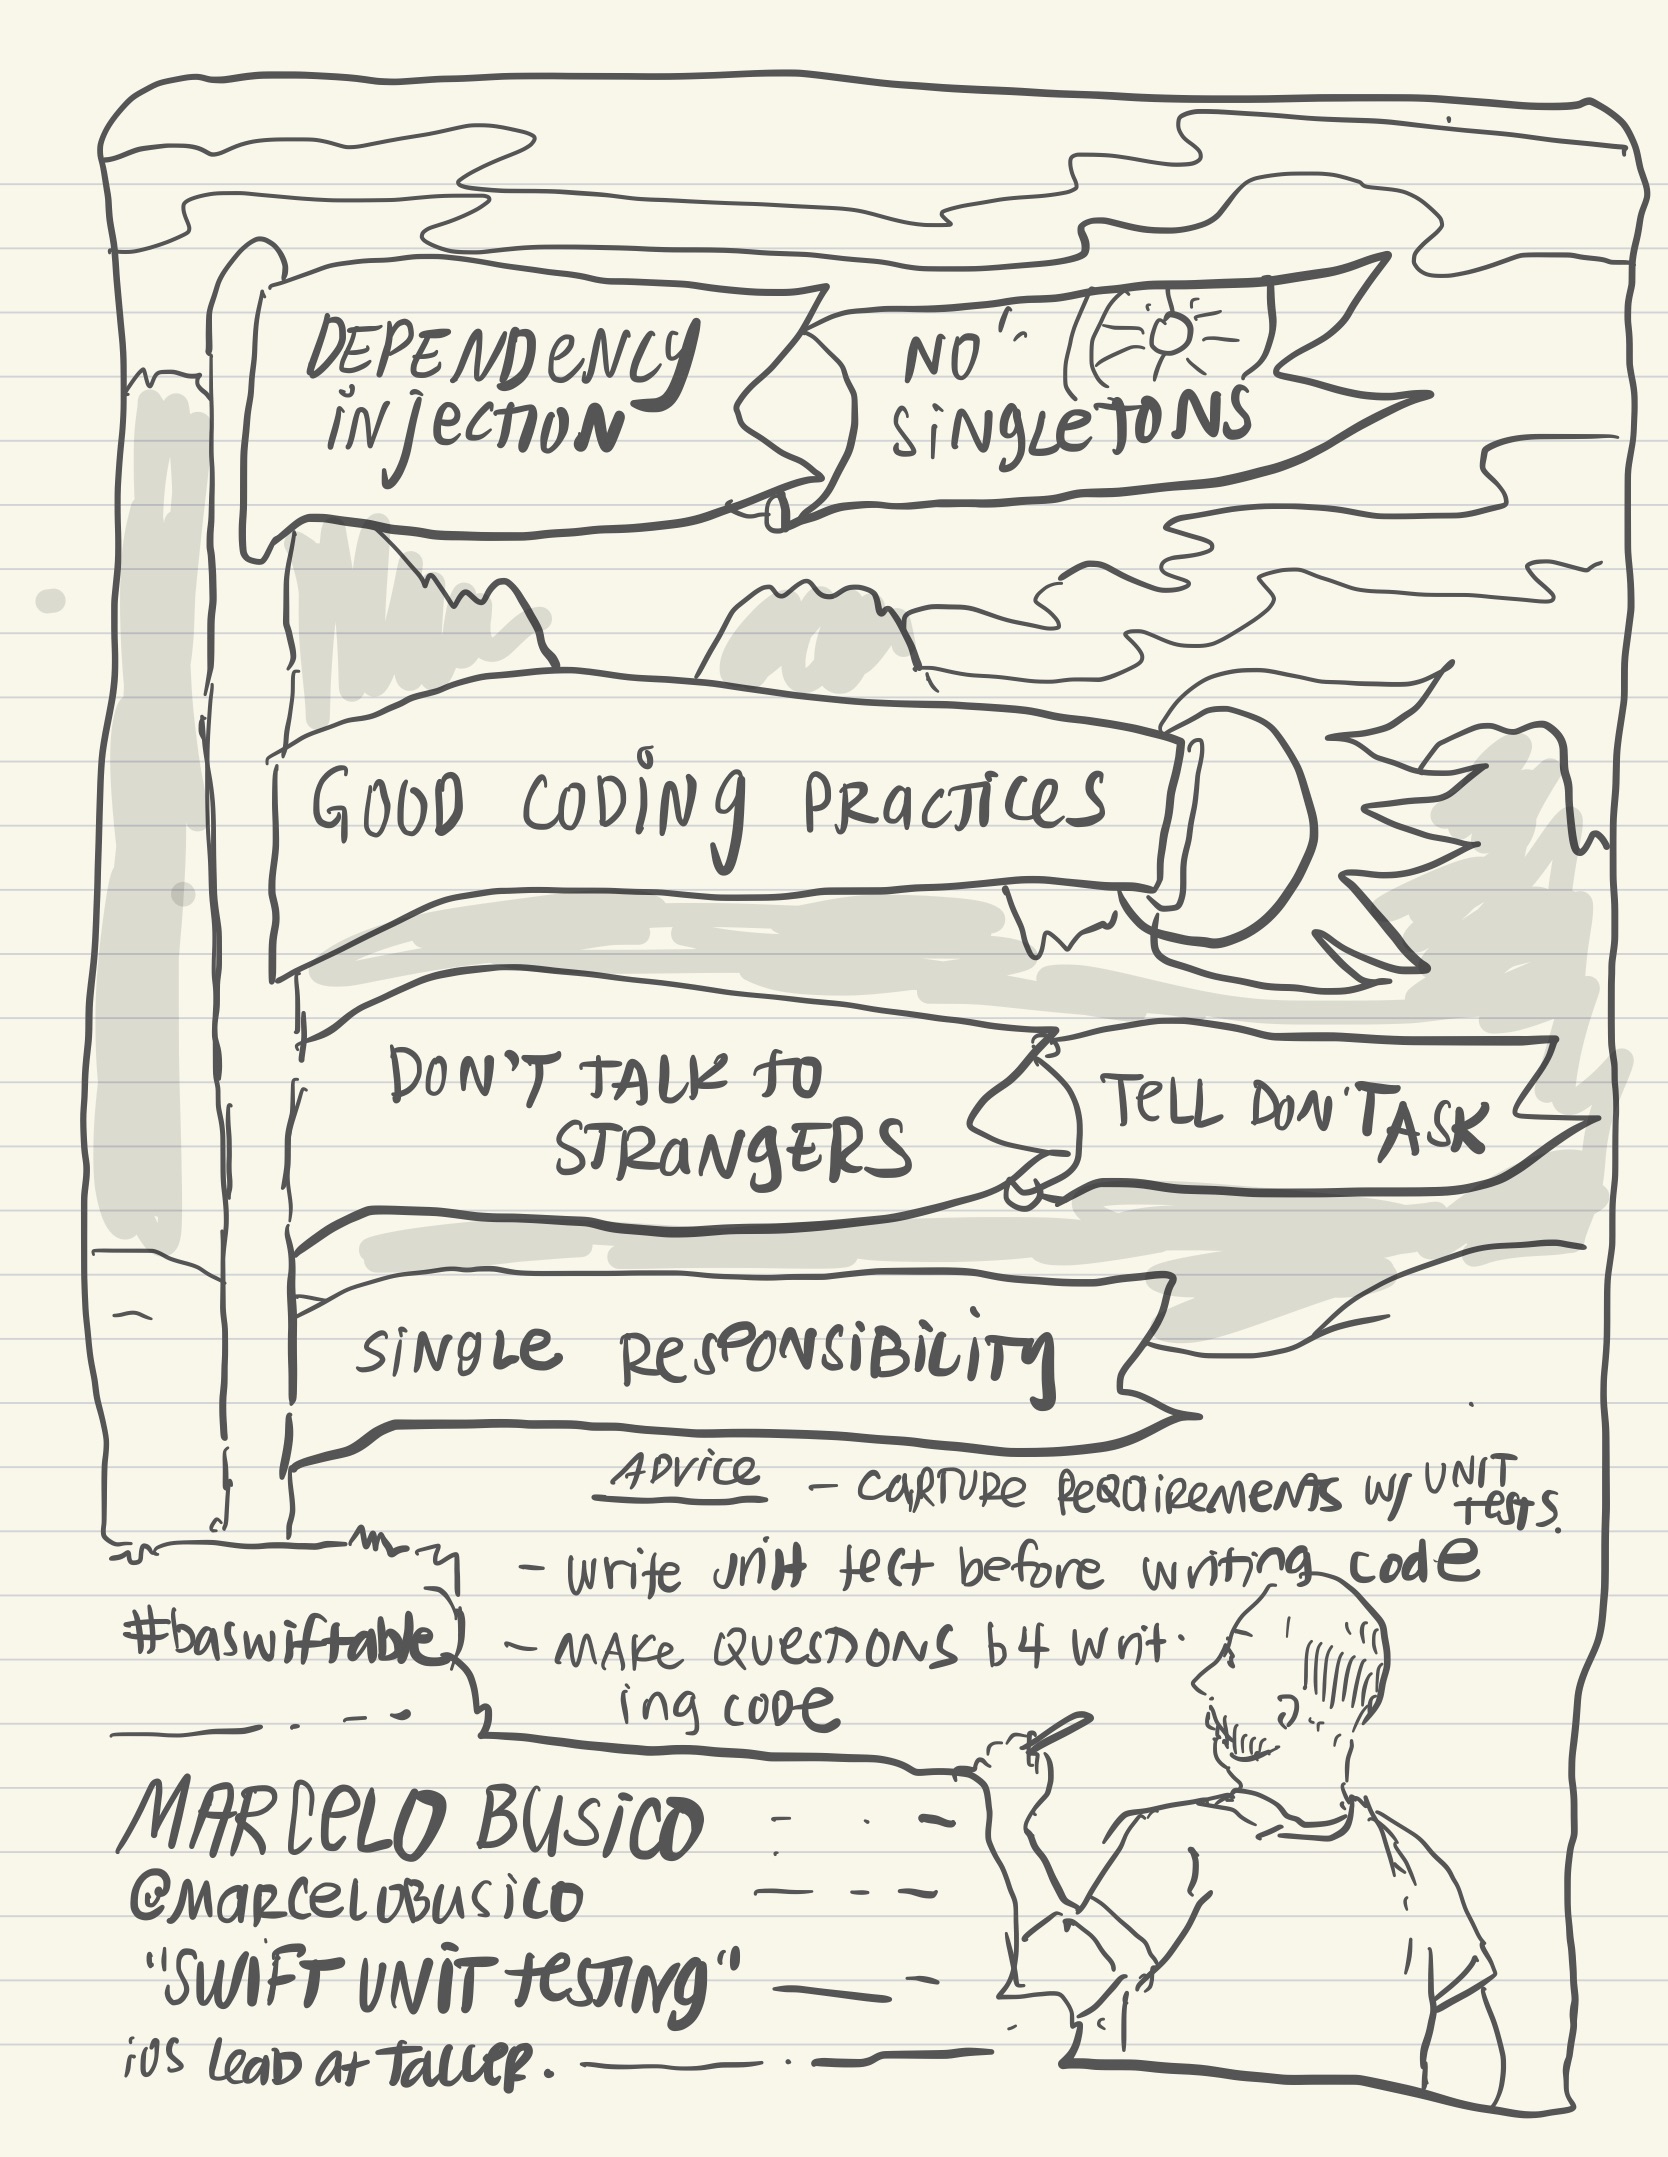 DEPENDENCY
INJECTION
NO
SINGLETONS
GOOD CODING PRACTICES
DON'T TALK TO
STRANGERS
TELL DON'T ASK
SINGLE RESPONSIBILITY
ADVICE - CAPTURE REQUIREMENTS W/ UNIT
TESTS.
- write unit test before writing code
- MAKE QUESTIONS b4 writ.
ing code
#baswiftable
MARCELO BUSICO
@MARCELOBUSICO
"SWIFT UNIT TESTING"
iOS LEAD AT TALLER.